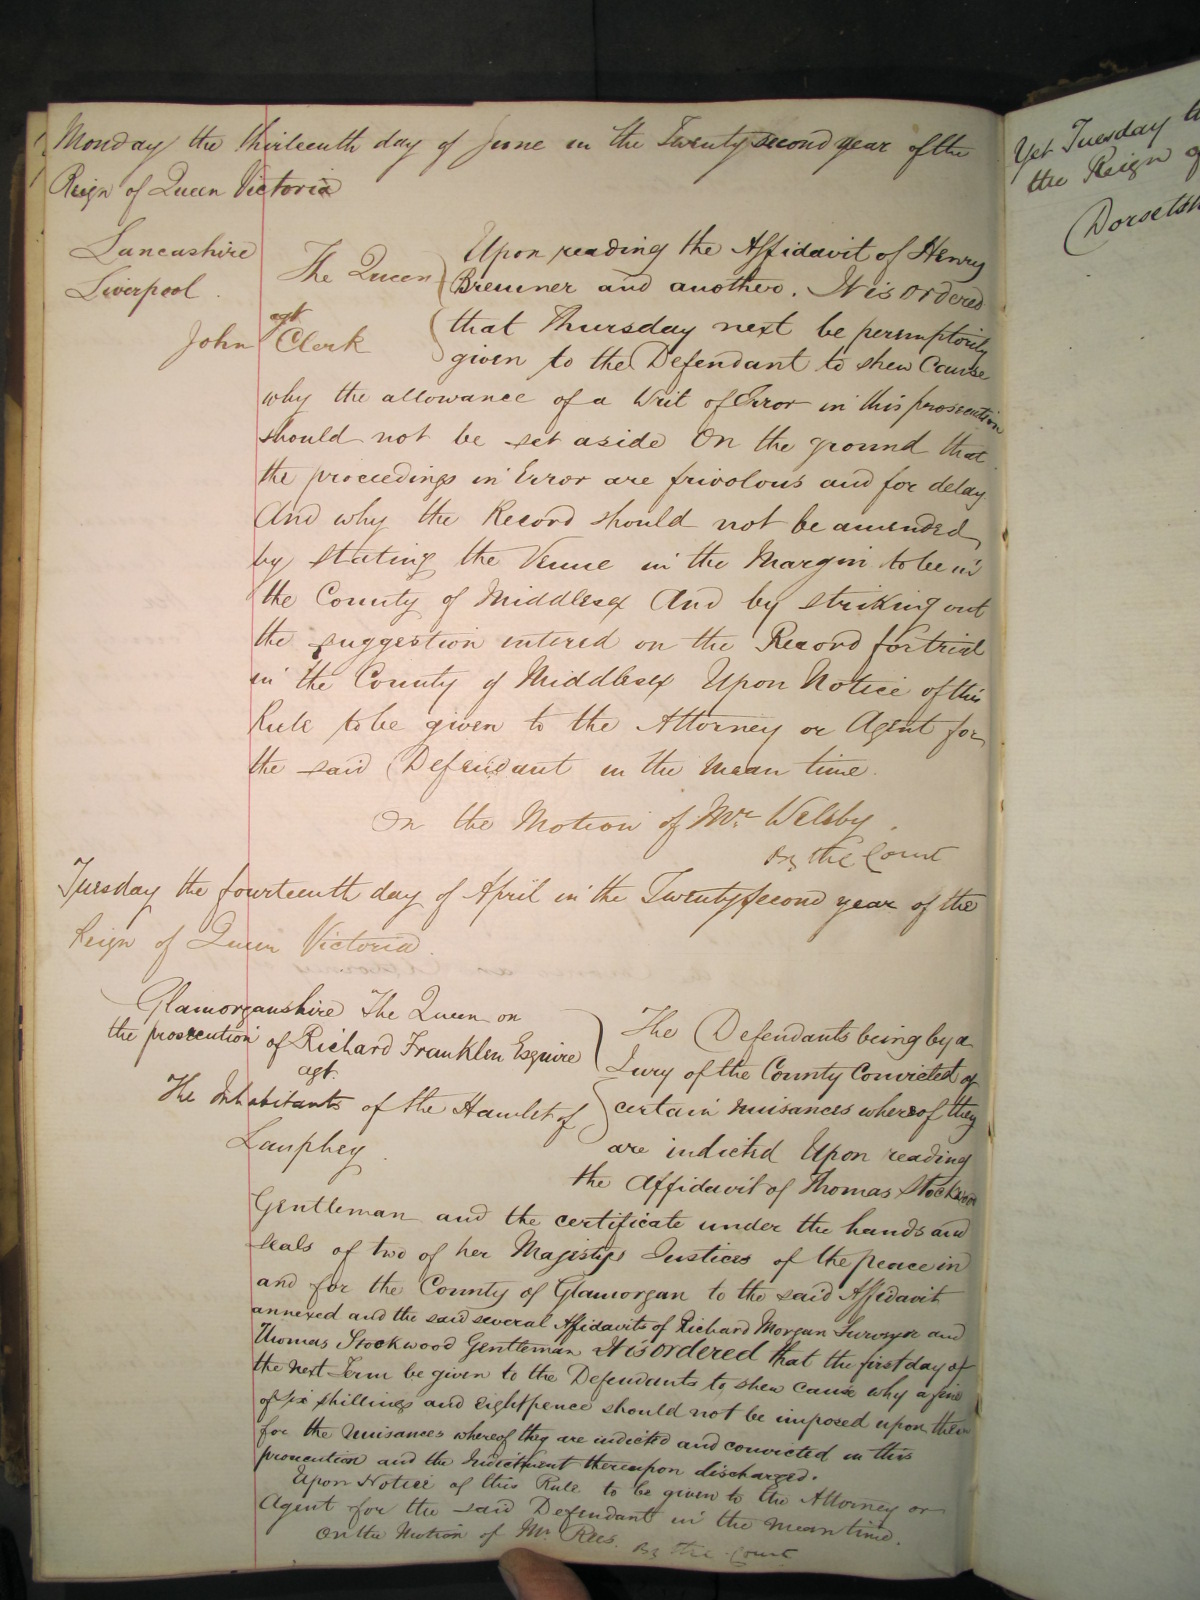 Monday the thirteenth day of June in the Twenty second year of the
Reign of Queen Victoria
Lancashire
Liverpool
The Queen
agt
John Clerk
Upon reading the Affidavit of Henry
and another. It is ordered
that Thursday next be peremptorily
given to the Defendant to shew Cause
why the allowance of a Writ of Error in this prosecution
should not be set aside On the ground that
the proceedings in Error are frivolous and for delay
And why the Record should not be amended
by stating the Venue in the Margin to be in
the County of Middlesex And by striking out
the suggestion entered on the Record for trial
in the County of Middlesex Upon Notice of this
Rule to be given to the Attorney or Agent for
the said Defendant in the mean time.
On the Motion of Mr. Welsby.
By the Court
Tuesday the fourteenth day of April in the Twenty second year of the
Reign of Queen Victoria.
Glamorganshire The Queen on
the prosecution of Richard Franklen Esquire
agt.
The Inhabitants of the Hamlet of
Lanphey.
The Defendants being by a
Jury of the County Convicted of
certain nuisances whereof they
are indicted Upon reading
the Affidavit of Thomas Stockwood
Gentleman and the certificate under the hands and
seals of two of her Majestys Justices of the peace in
and for the County of Glamorgan to the said Affidavit
annexed and the said several Affidavits of Richard Morgan Surveyor and
Thomas Stockwood Gentleman It is ordered that the first day of
the next Term be given to the Defendants to shew cause why a fine
of six shillings and eightpence should not be imposed upon them
for the nuisances whereof they are indicted and convicted in this
prosecution and the Indictment thereupon discharged.
Upon Notice of this Rule to be given to the Attorney or
Agent for the said Defendant in the mean time.
On the Motion of Mr. Rees.
By the Court
Yet Tuesday
the Reign